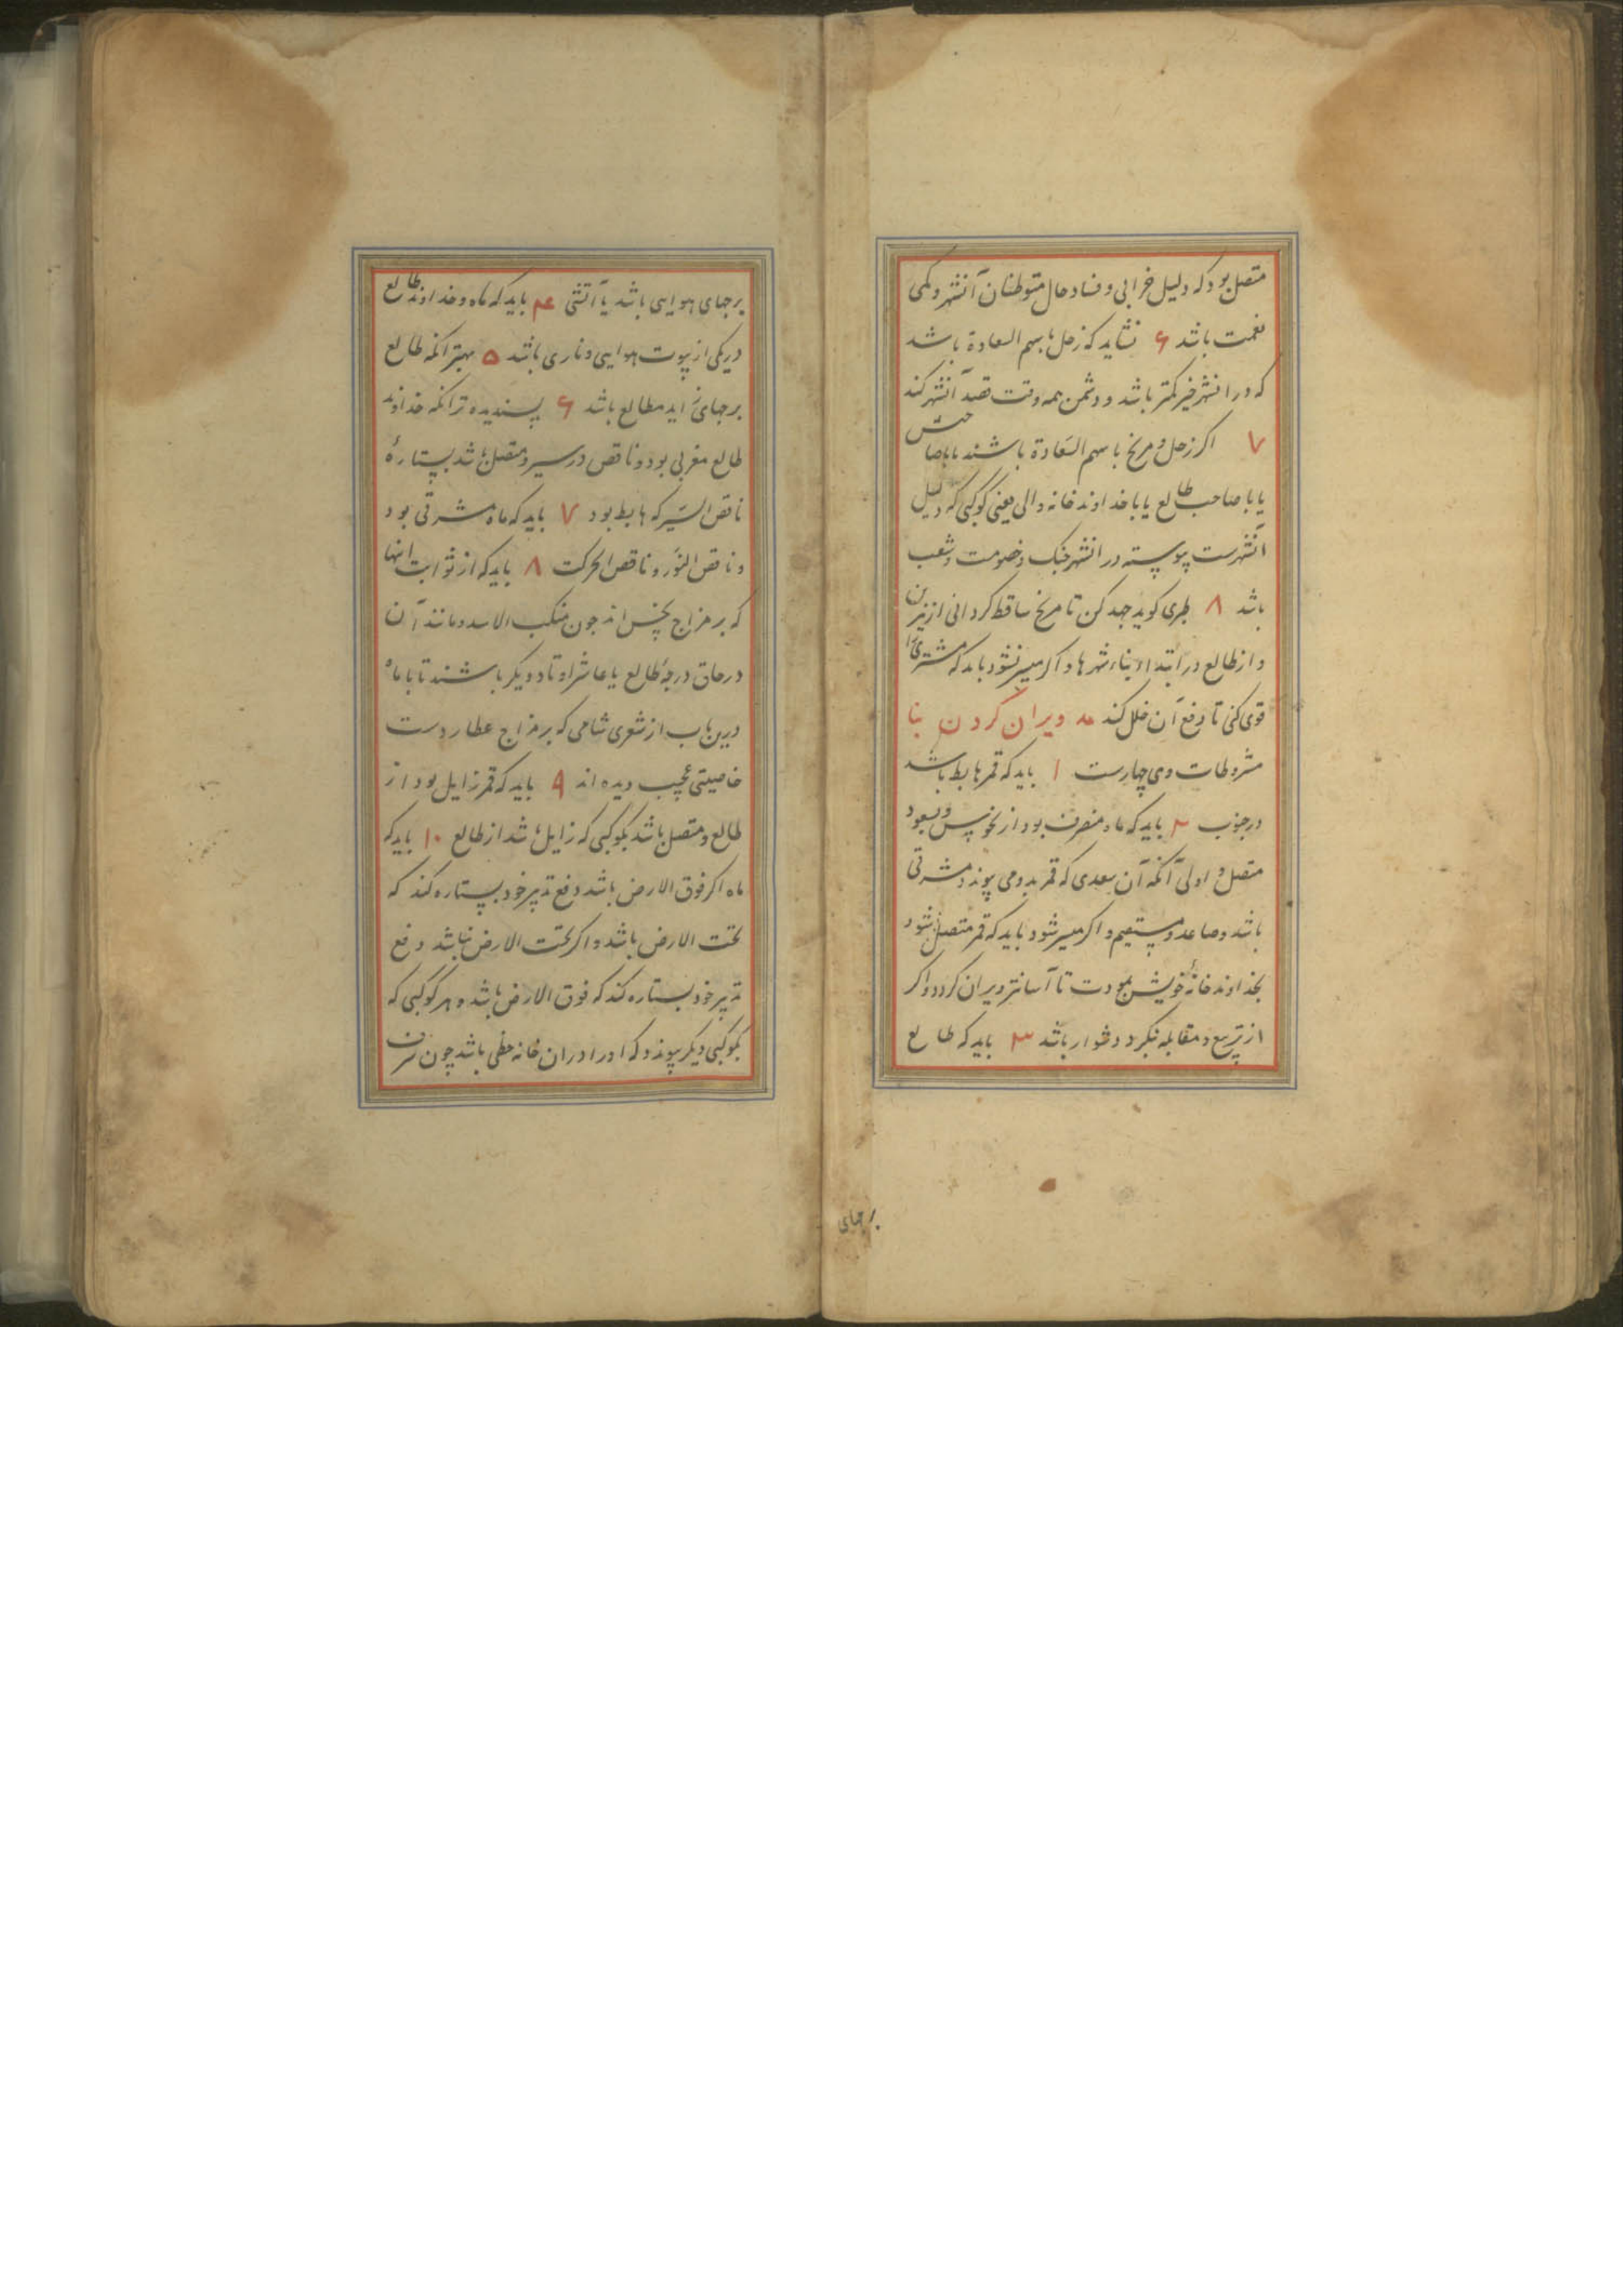 متصل بود که دلیل خرابی و فساد حال متوطنان آنشهر و کمی
نعمت باشد ۶ نشاید که زحل با سهم السعادة باشد
که در انشهر خیر کمتر باشد و دشمن همه وقت قصد آنشهر کند
۷ اکر زحل و مریخ با سهم السعادة باشند
یا با صاحب طالع یا با خداوند خانه والی یعنی کوکبی که دلیل
آنشهرست پیوسته در انشهر جنک و خصومت و شعب
باشد ۸ طبری کوید جهد کن تا مریخ ساقط کردانی از نیرین
و از طالع در ابتداء بناء شهرها و اکر میسر نشود باید که مشتری را
قوی کنی تا دفع آن خلل کند ویران کردن بنا
مشروطات وی چهارست ۱ باید که قمر هابط باشد
در جنوب ۲ باید که ماه منصرف بود از نحوس و بسعود
متصل و اولی آنکه آن سعدی که قمر بدو می پیوندد مشرقی
باشد و صاعد و مستقیم و اکر میسر شود باید که قمر متصل شود
بخداوند خانهٔ خویش بمودت تا آسانتر ویران کردد و اکر
از تربیع و مقابله نکرد دشوار باشد ۳ باید که طالع
برجهای
برجهای هوایی باشد یا آتشی ۴ باید که ماه و خداوند طالع
در یکی از بیوت هوایی و ناری باشد ۵ بهتر انکه طالع
برجهای زاید مطالع باشد ۶ پسندیده تر انکه خداوند
طالع مغربی بود و ناقص در سیر و متصل باشد بستارهٔ
ناقص السیر که هابط بود ۷ باید که ماه مشرقی بود
و ناقص النور و ناقص الحرکت ۸ باید که از ثوابت انها
که بر مزاج نحس اند چون منکب الاسد و مانند آن
در حاق درجهٔ طالع یا عاشر او تاد دیکر باشند تا با ماه
درین باب از شعری شامی که بر مزاج عطاردست
خاصیتی عجیب دیده اند ۹ باید که قمر زایل بود از
طالع و متصل باشد بکوکبی که زایل باشد از طالع ۱۰ باید که
ماه اکر فوق الارض باشد دفع تدبیر خود بستاره کند که
تحت الارض باشد و اکر تحت الارض باشد دفع
تدبیر خود بستاره کند که فوق الارض باشد و هر کوکبی که
بکوکبی دیکر پیوندد که او را در ان خانه حظی باشد چون شرف